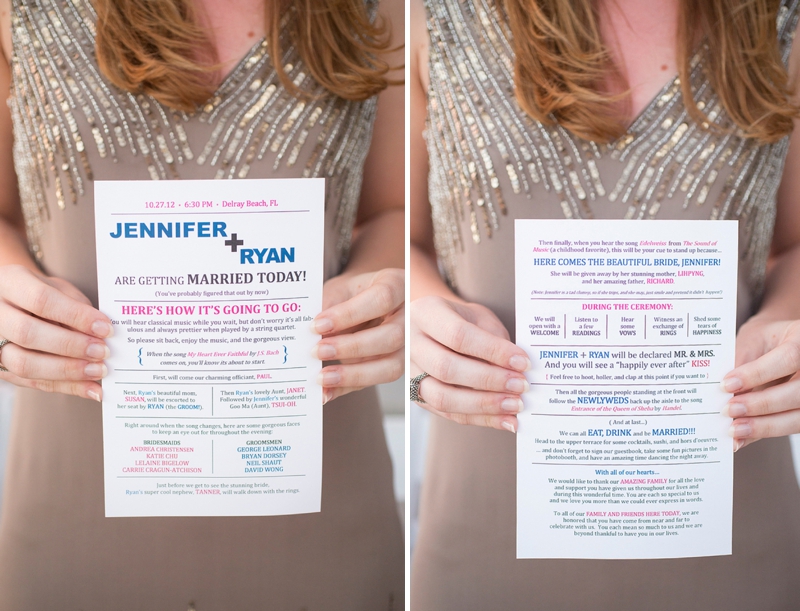 10.27.12 • 6:30 PM • Delray Beach, FL
JENNIFER
+
RYAN
ARE GETTING MARRIED TODAY!
(You've probably figured that out by now)
HERE'S HOW IT'S GOING TO GO:
You will hear classical music while you wait, but don't worry it's all fab-
ulous and always prettier when played by a string quartet.
So please sit back, enjoy the music, and the gorgeous view.
{ When the song My Heart Ever Faithful by J.S. Bach }
comes on, you'll know its about to start.
First, will come our charming officiant, PAUL.
Next, Ryan's beautiful mom,
SUSAN, will be escorted to
her seat by RYAN (the GROOM!).
Then Ryan's lovely Aunt, JANET.
Followed by Jennifer's wonderful
Goo Ma (Aunt), TSUI-OH.
Right around when the song changes, here are some gorgeous faces
to keep an eye out for throughout the evening:
BRIDESMAIDS
ANDREA CHRISTENSEN
KATIE CHU
LELAINE BIGELOW
CARRIE CRAGUN-ATCHISON
GROOMSMEN
GEORGE LEONARD
BRYAN DORSEY
NEIL SHAUT
DAVID WONG
Just before we get to see the stunning bride,
Ryan's super cool nephew, TANNER, will walk down with the rings.
Then finally, when you hear the song Edelweiss from The Sound of
Music (a childhood favorite), this will be your cue to stand up because...
HERE COMES THE BEAUTIFUL BRIDE, JENNIFER!
She will be given away by her stunning mother, LIHPYNG,
and her amazing father, RICHARD.
(Note: Jennifer is a tad clumsy, so if she trips, and she may, just smile and pretend it didn't happen!)
DURING THE CEREMONY:
We will
open with a
WELCOME
Listen to
a few
READINGS
Hear
some
VOWS
Witness an
exchange of
RINGS
Shed some
tears of
HAPPINESS
JENNIFER + RYAN will be declared MR. & MRS.
And you will see a "happily ever after" KISS!
( Feel free to hoot, holler, and clap at this point if you want to )
Then all the gorgeous people standing at the front will
follow the NEWLYWEDS back up the aisle to the song
Entrance of the Queen of Sheba by Handel.
( And at last... )
We can all EAT, DRINK and be MARRIED!!!
Head to the upper terrace for some cocktails, sushi, and hors d'oeuvres.
... and don't forget to sign our guestbook, take some fun pictures in the
photobooth, and have an amazing time dancing the night away.
With all of our hearts...
We would like to thank our AMAZING FAMILY for all the love
and support you have given us throughout our lives and
during this wonderful time. You are each so special to us
and we love you more than we could ever express in words.
To all of our FAMILY AND FRIENDS HERE TODAY, we are
honored that you have come from near and far to
celebrate with us. You each mean so much to us and we are
beyond thankful to have you in our lives.